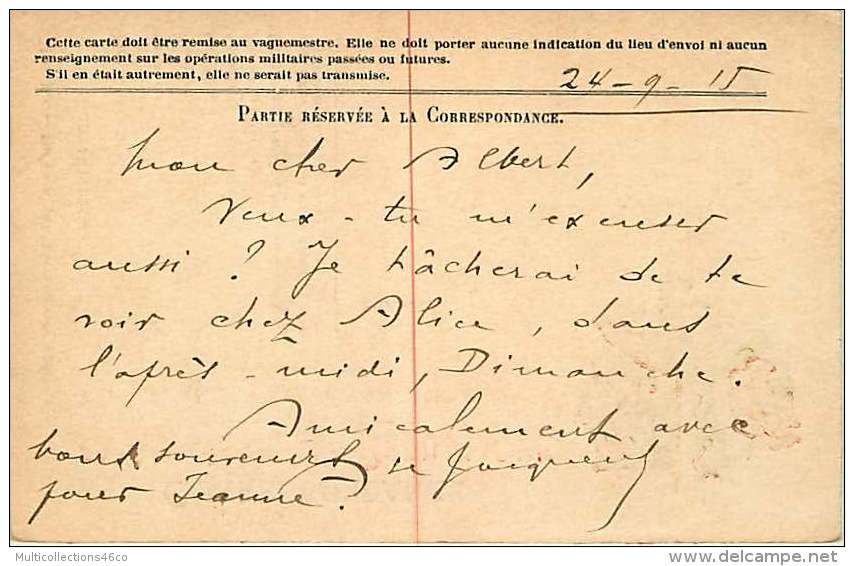 Cette carte doit être remise au vaguemestre. Elle ne doit porter aucune indication du lieu d'envoi ni aucun
renseignement sur les opérations militaires passées ou futures.
S'il en était autrement, elle ne serait pas transmise.
24-9-15
PARTIE RÉSERVÉE À LA CORRESPONDANCE.
Mon cher Albert,
Veux-tu m'excuser
aussi ? Je tâcherai de te
voir chez Alice, dans
l'après-midi, Dimanche.
Amicalement avec
bons souvenirs de
pour Jeanne.
Multicollections46co
delcampe.net